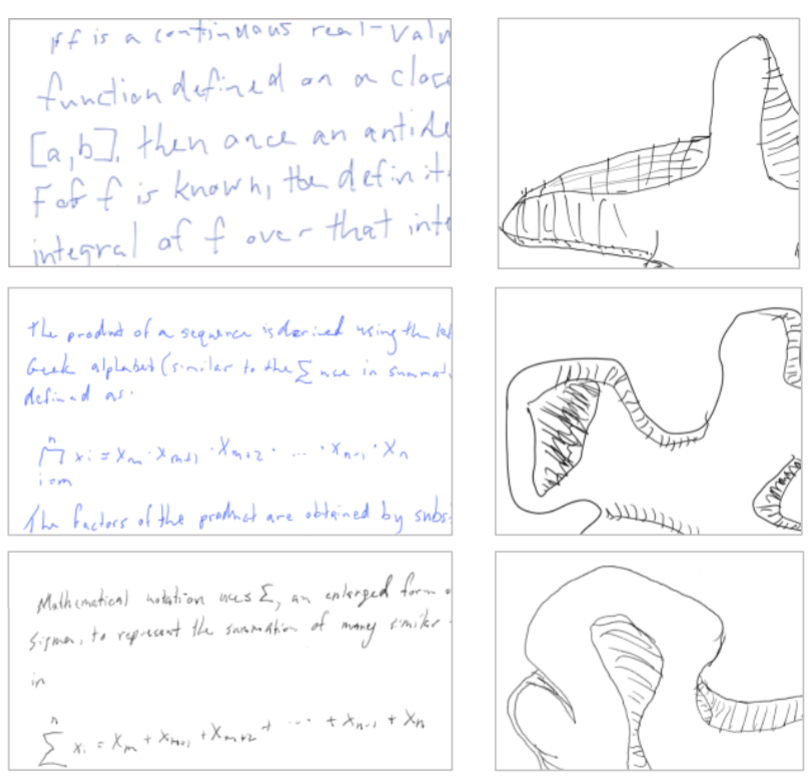 If is a continuous real-valu
function defined on a close
[a,b], then once an antide
F of f is known, the definit
integral of f over that inte
The product of a sequence is derived using the
Greek alphabet (similar to the ∑ use in summat
defined as:
n
∏ xi = Xm · Xm+1 · Xm+2 · ... · Xn-1 · Xn
i=m
The factors of the product are obtained by subs
Mathematical notation uses ∑, an enlarged form
sigma, to represent the summation of many similar
in
n
∑ xi = Xm + Xm+1 + Xm+2 + ... + Xn-1 + Xn